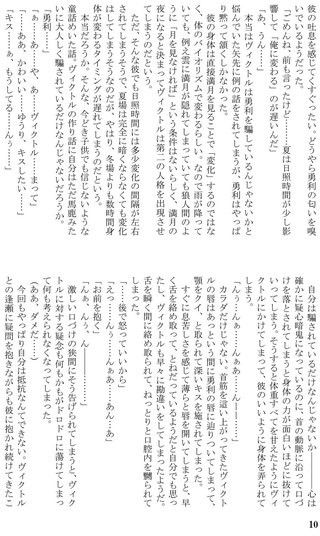 彼の吐息を感じてくすぐったい。どうやら勇利の匂いを嗅
いでいるようだった。
「ごめんね、前も言ったけど……夏は日照時間が少し影
響して『俺に変わる』のが遅いんだ」
「あ、うん……」
本当はヴィクトルは勇利を騙しているんじゃないかと
悩んでいた矢先に例の話をされてしまうが、勇利はやっぱ
黙って頷くしかなかった。
彼の身体は直接満月を見ることで「変化」するのではな
く、体のバイオリズムで変わるらしい。なので雨が降って
いても、例え雲に満月が隠れてしまっていても狼人間のよ
うに「月を見なければ」という条件はないらしく、満月の
夜になると決まってヴィクトルは第二の人格を出現させ
てしまうのだという。
ただ、そんな彼でも日照時間には多少変化の間隔が左右
されてしまうそうで、夏場は完全に暗くならなくても変化
はしてしまうそうなのだが、やはり、冬場よりも数時間身
体が変わるタイミングが遅れてしまうのだという。
本当だろうか。そんな、今どき子供でも信じないような
童話めいた話。ヴィクトルの作り話に自分はただ馬鹿みた
いに大人しく騙されているだけなんじゃないだろうか。
「勇利……」
「ぁ……あ……や、あ……ヴィクトル……まって」
「……ああ、かわいい……ゆうり、キスしたい……」
「キス……ぁ、もうしてる……んぅ……」
自分は騙されているだけなんじゃないか――心は
確かに疑心暗鬼になっているのに、首の動脈に沿って口づ
けを落とされてしまうと身体の力が面白いほどに抜けて
いってしまう。そうすると体重すべてを甘えたようにヴィ
クトルにかけてしまって、彼のいいように身体を弄られて
しまう。
「んぅ……んぁ……んんぁ……んーー……」
力が入っただけじゃない、首筋を這い上ってきたヴィクト
ルの唇はあっという間に勇利の唇に辿りついてしまって、
顎をクイ、と取られて深いキスを施されてしまった。
すぐに息苦しさを感じて薄らと唇を開いてしまうと、早
く舌を絡め取って、とねだっているようだと自分でも思っ
たし、ヴィクトルも早々に勘違いをしてしまったようだ。
舌を瞬く間に絡め取られて、ねっとりと口腔内を嬲られ
しまった。
「……後で怒っていいから」
「えっ……んぅ……んぁ……あ……んぁ」
「お前を抱く」
「んぁ、んぅ……んん……」
激しい口づけの狭間にそう告げられてしまうと、ヴィク
トルに対する疑念も何もかもがドロドロに蕩けてしまっ
て何も考えられなくなってしまう。
（あぁ、ダメだ……）
今回もやっぱり自分は抵抗なんてできない。ヴィクトル
との逢瀬に疑問を抱きながらも彼に抱かれ続けてきたこ
10